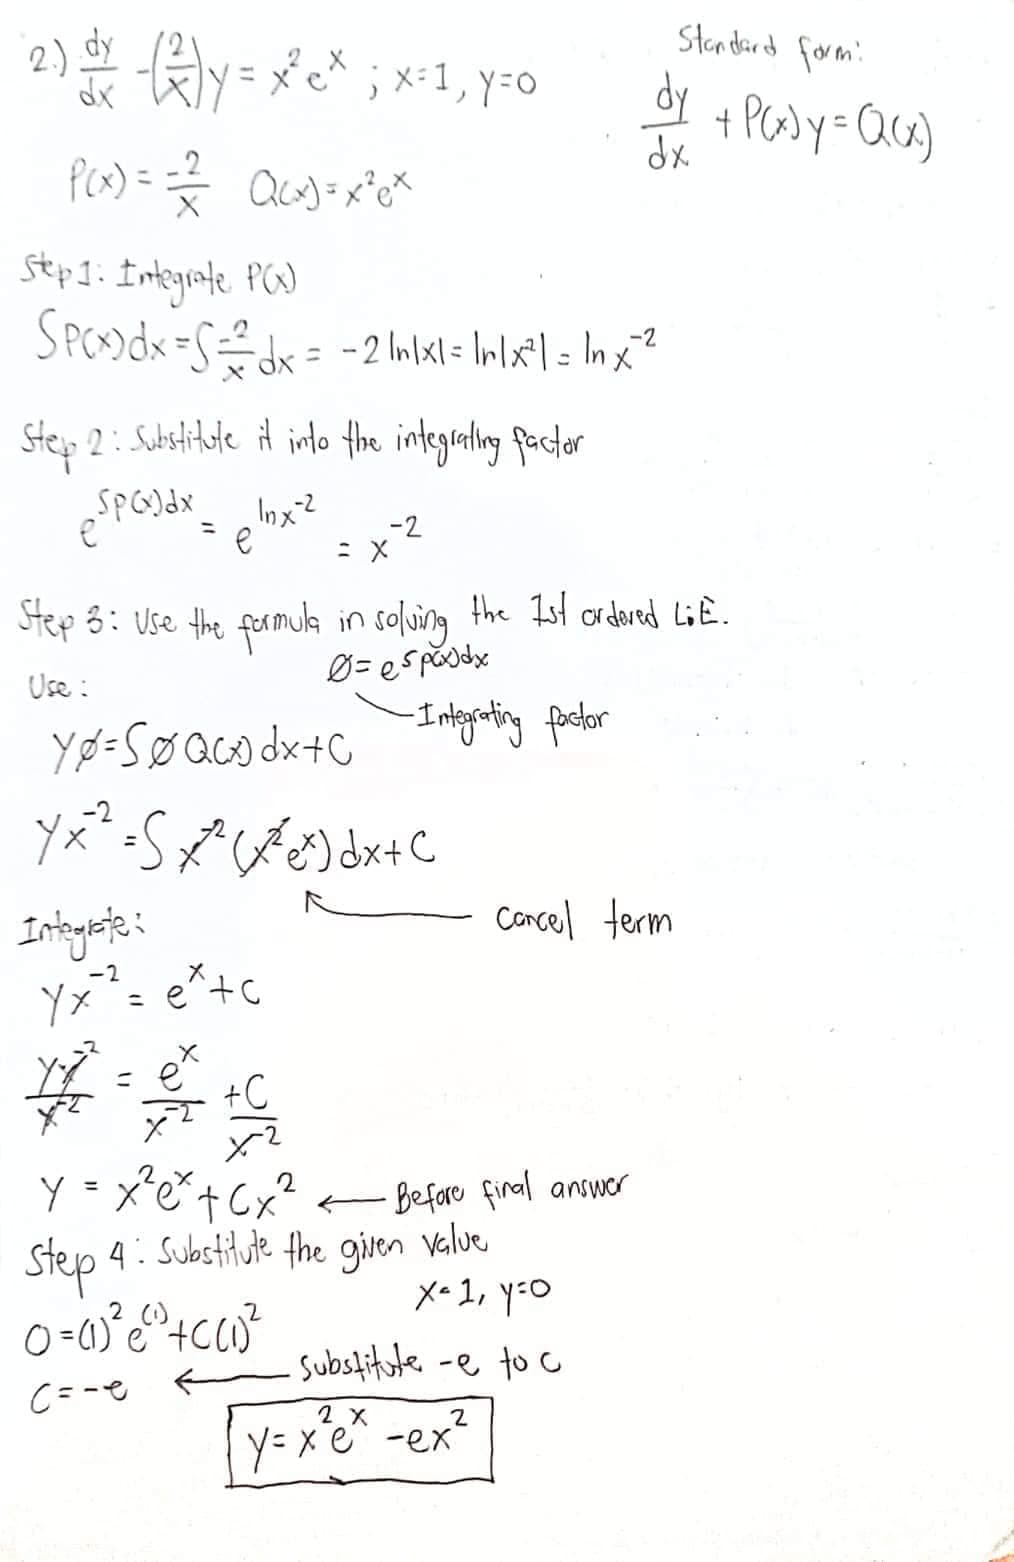 2.) dy/dx -(2/x)y = x²eˣ ; x=1, y=0
Standard form:
dy/dx + P(x)y = Q(x)
P(x) = -2/x Q(x) = x²eˣ
Step 1: Integrate P(x)
∫P(x)dx = ∫-2/x dx = -2 ln|x| = ln|x²| = ln x⁻²
Step 2: Substitute it into the integrating factor
e^∫p(x)dx = e^ln x⁻² = x⁻²
Step 3: Use the formula in solving the 1st ordered L.E.
Ø = e^∫p(x)dx
Use:
Integrating factor
yØ = ∫Ø Q(x) dx + C
yx⁻² = ∫x⁻²(x²eˣ)dx + C
cancel term
Integrate:
yx⁻² = eˣ + C
yx⁻²/x⁻² = eˣ/x⁻² + C/x⁻²
y = x²eˣ + Cx² ← Before final answer
Step 4: Substitute the given value
x=1, y=0
0 = (1)²e⁽¹⁾ + C(1)²
C = -e ← substitute -e to c
y = x²eˣ - ex²